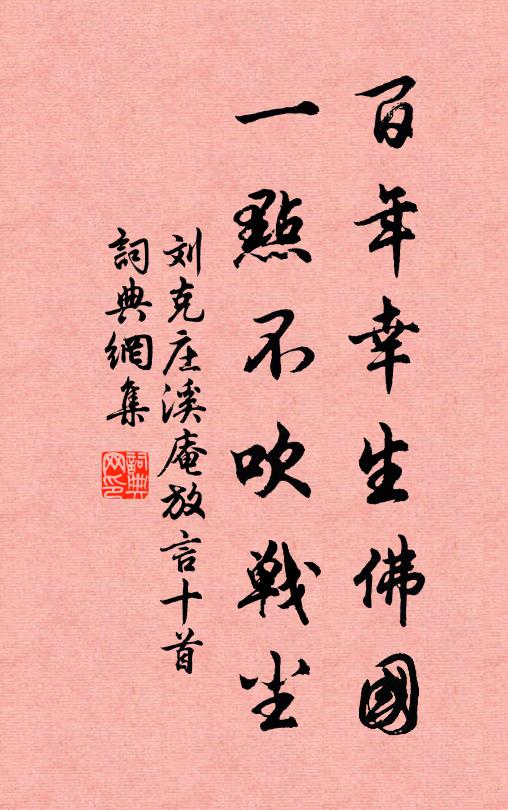 百年幸生佛國
一點不吹戦尘
刘克庄溪庵放言十首
詞典網集
詞典网印